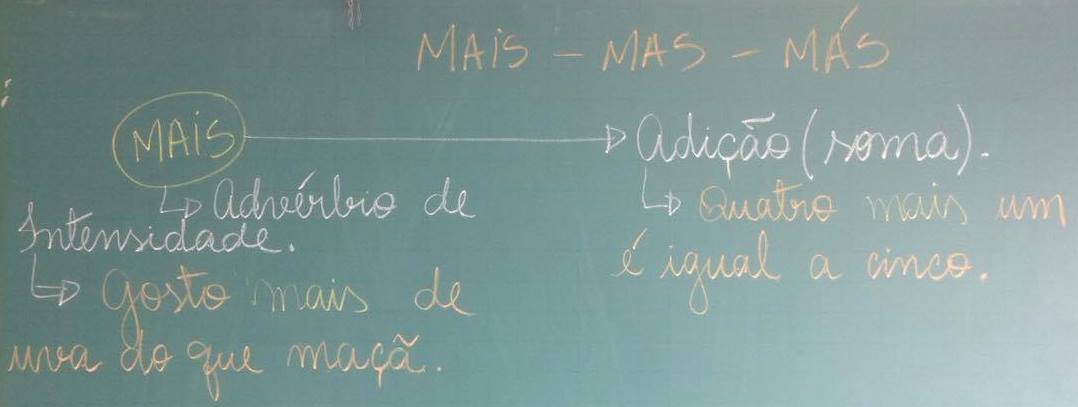 MAIS - MAS - MÁS
MAIS → Adição (soma).
↳ Advérbio de
Intensidade.
↳ Gosto mais de
uva do que maçã.
↳ Quatro mais um
é igual a cinco.